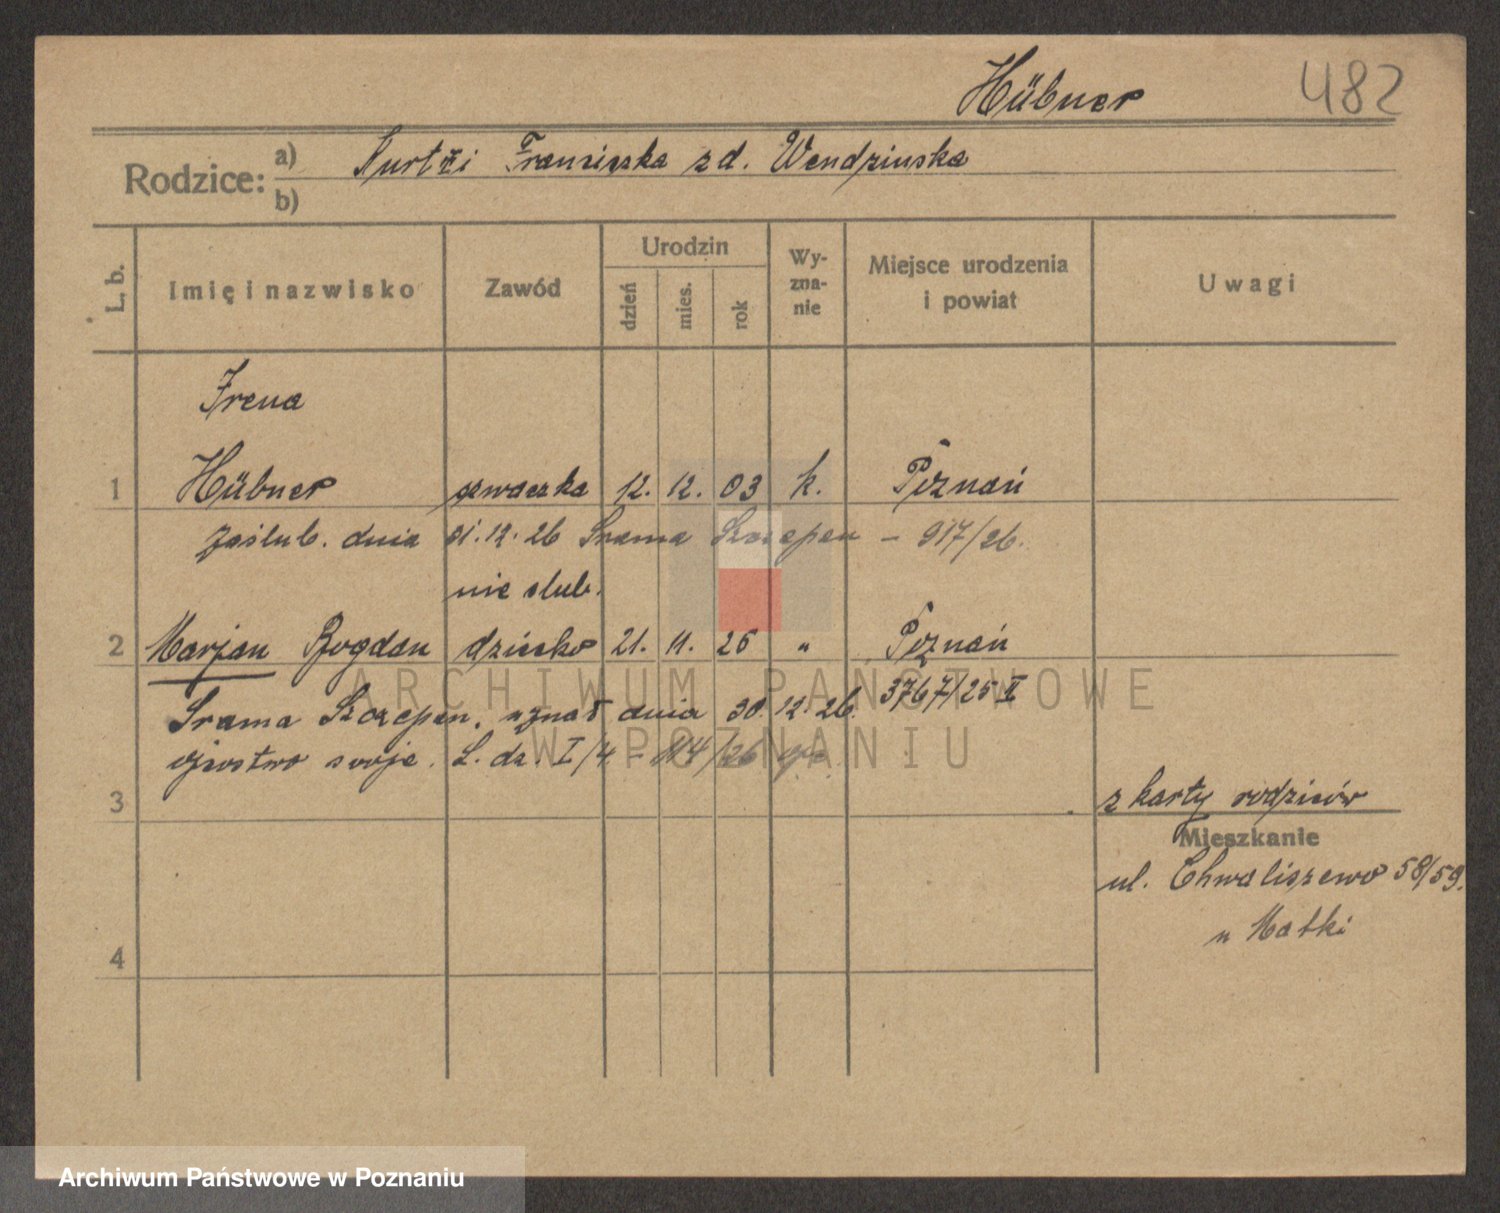 Hübner 482
Rodzice: a) Franciszka zd. Wendzinska
b)
L. b. Imię i nazwisko Zawód Urodzin dzień mies. rok Wy-zna-nie Miejsce urodzenia i powiat Uwagi
Irena
1 Hübner szwaczka 12. 12. 03 k. Poznań
zaślub. dnia 31.12.26 Srama Szczepan – 917/26.
nie ślub.
2 Marjan Bogdan dziecko 21. 11. 25 " Poznań
3767/25 II
Srama Szczepan, uznał dnia 30.12.26.
ojcostwo swoje. L. dz. I/4 – 114/26
3 z karty rodziców
Mieszkanie
ul. Chwaliszewo 58/59.
u Matki
4
ARCHIWUM PAŃSTWOWE
W POZNANIU
Archiwum Państwowe w Poznaniu